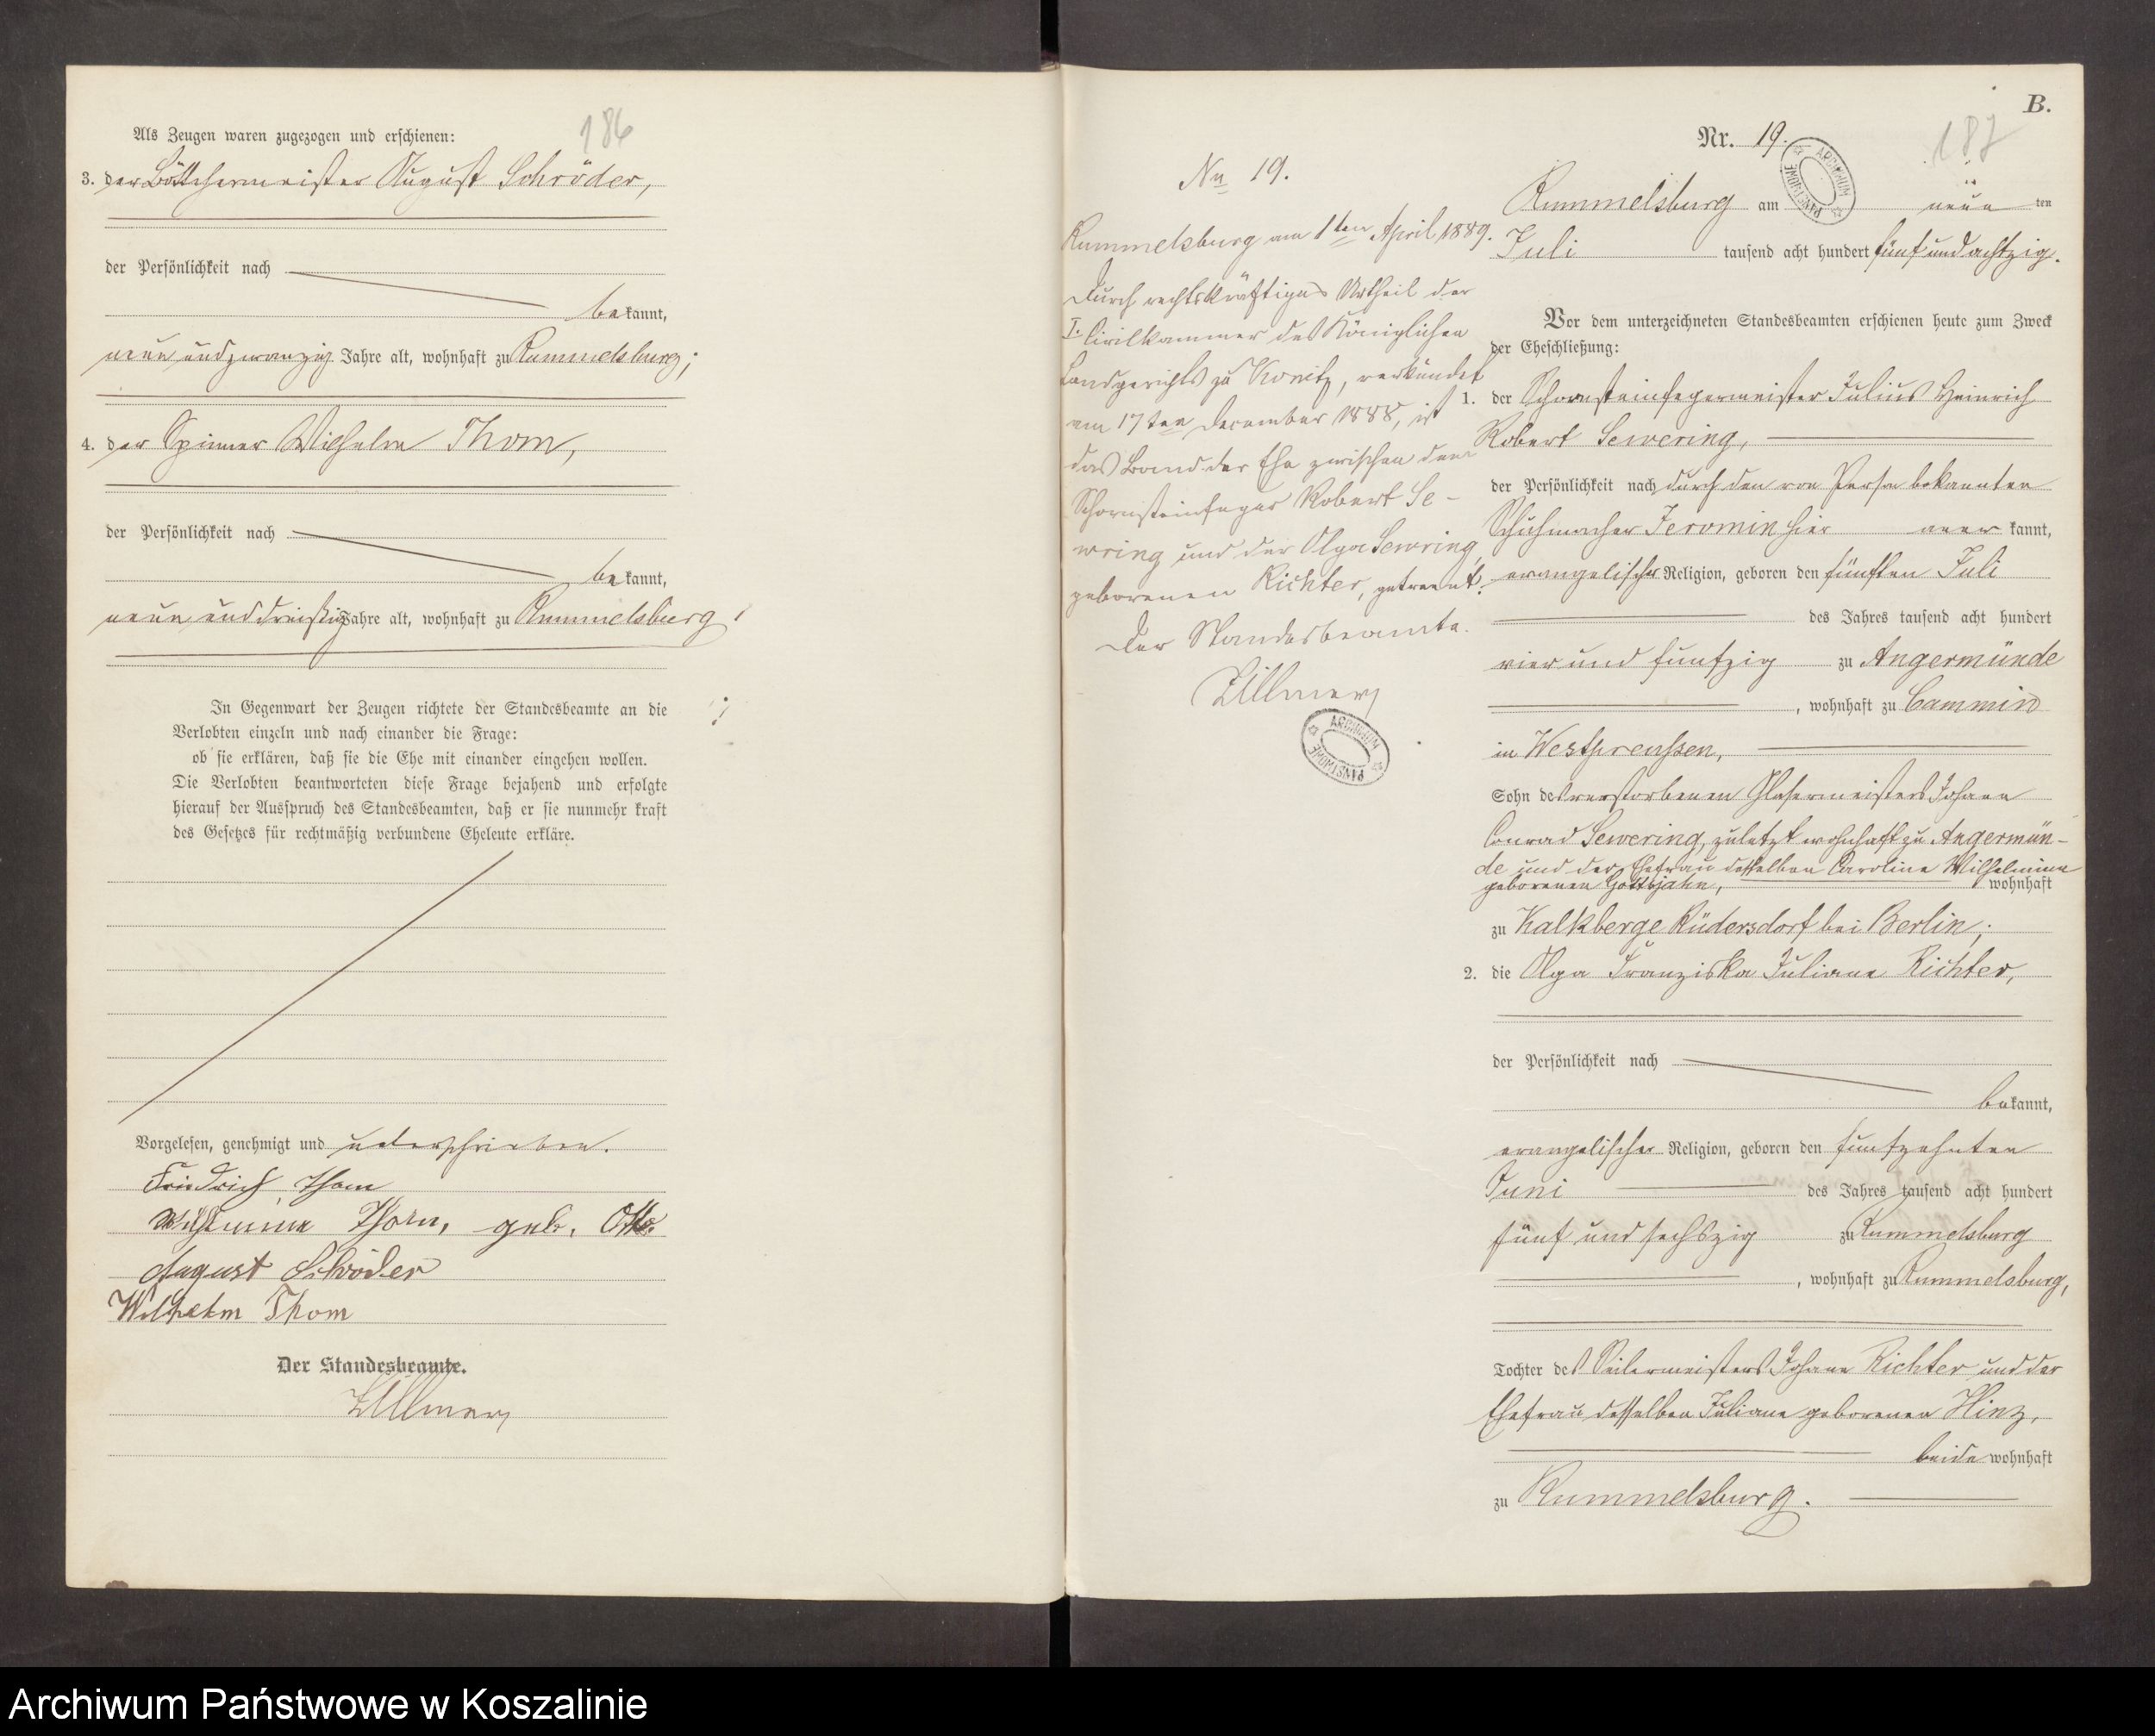 186
Als Zeugen waren zugezogen und erschienen:
3. der Böttchermeister August Schröder,
der Persönlichkeit nach
bekannt,
neun und zwanzig Jahre alt, wohnhaft zu Rummelsburg;
4. der Spinner Wilhelm Thom,
der Persönlichkeit nach
bekannt,
neun und dreißig Jahre alt, wohnhaft zu Rummelsburg,
In Gegenwart der Zeugen richtete der Standesbeamte an die
Verlobten einzeln und nach einander die Frage:
ob sie erklären, daß sie die Ehe mit einander eingehen wollen.
Die Verlobten beantworteten diese Frage bejahend und erfolgte
hierauf der Ausspruch des Standesbeamten, daß er sie nunmehr kraft
des Gesetzes für rechtmäßig verbundene Eheleute erkläre.
Vorgelesen, genehmigt und unterschrieben.
Friedrich Thom
Wilhelmine Thom, geb. Otto
August Schröder
Wilhelm Thom
Der Standesbeamte.
Zillmer
No 19.
Rummelsburg am 1ten April 1889.
Durch rechtskräftiges Urtheil der
I. Civilkammer des Königlichen
Landgerichts zu Konitz, verkündet
am 17ten December 1888, ist
das Band der Ehe zwischen dem
Schornsteinfeger Robert Se-
wring und der Olga Sewring
geborenen Richter, getrennt.
Der Standesbeamte.
Zillmer
ARCHIWUM PAŃSTWOWE
B.
187
Nr. 19.
ARCHIWUM PAŃSTWOWE
Rummelsburg am neun ten
Juli tausend acht hundert fünf und achtzig.
Vor dem unterzeichneten Standesbeamten erschienen heute zum Zweck
der Eheschließung:
1. der Schornsteinfegermeister Julius Heinrich
Robert Sewering,
der Persönlichkeit nach durch den von Person bekannten
Schuhmacher Jeromin hier aner kannt,
evangelischer Religion, geboren den fünften Juli
des Jahres tausend acht hundert
vier und funfzig zu Angermünde
, wohnhaft zu Cammin
in Westpreussen,
Sohn des verstorbenen Glasermeisters Johann
Conrad Sewering, zuletzt wohnhaft zu Angermün-
de und der Ehefrau desselben Caroline Wilhelmine
geborenen Gottsjahn, wohnhaft
zu Kalkberge Rüdersdorf bei Berlin;
2. die Olga Franziska Juliane Richter,
der Persönlichkeit nach
bekannt,
evangelischer Religion, geboren den funfzehnten
Juni des Jahres tausend acht hundert
fünf und sechszig zu Rummelsburg
, wohnhaft zu Rummelsburg,
Tochter des Seilermeisters Johann Richter und der
Ehefrau desselben Juliane geborenen Hinz,
beide wohnhaft
zu Rummelsburg.
Archiwum Państwowe w Koszalinie